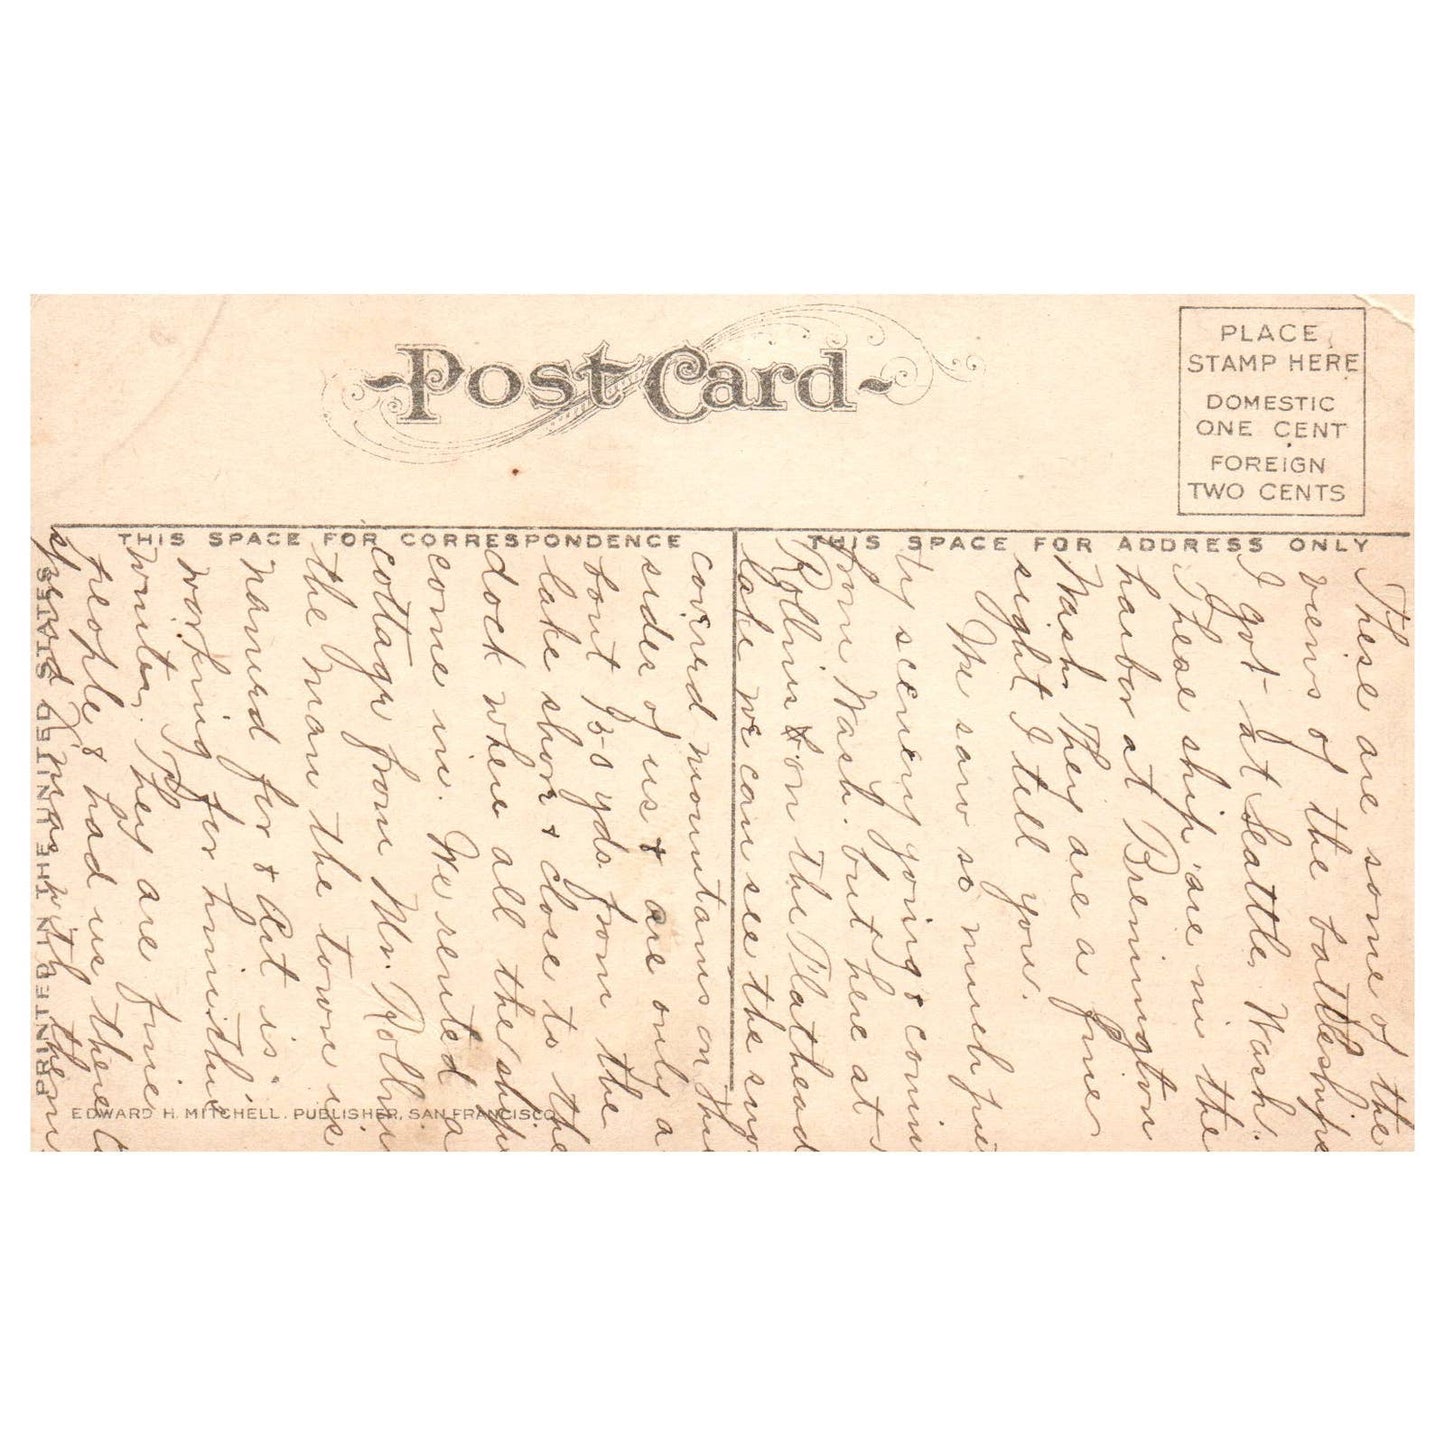 Post Card
PLACE
STAMP HERE
DOMESTIC
ONE CENT
FOREIGN
TWO CENTS
THIS SPACE FOR CORRESPONDENCE
THIS SPACE FOR ADDRESS ONLY
These are some of the
views of the battleships
I got at Seattle, Wash.
These ships are in the
harbor at Bremington
Wash. They are a fine
sight I tell you.
We saw so much pret
ty scenery going & comin
from Wash. but here at
Rollins on the Flathead
lake we can see the snow
coverd mountains on three
sides of us & are only a
bout 30 yds from the
lake shore & close to the
dock where all the ships
come in. We rented a
cottage from Mr. Rollins
the man the town is
named for & Art is
working for him this
winter. They are fine
people & had us there to
spend Xmas with them
PRINTED IN THE UNITED STATES
EDWARD H. MITCHELL, PUBLISHER, SAN FRANCISCO